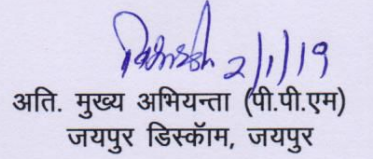 2/1/19
अति. मुख्य अभियन्ता (पी.पी.एम)
जयपुर डिस्कॉम, जयपुर